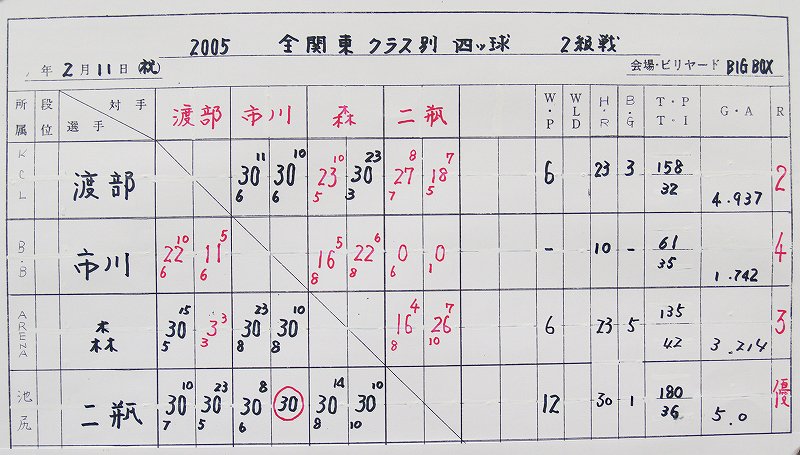 2005 全関東クラス別 四ッ球 2級戦
年 2月11日(祝) 会場・ビリヤード BIG BOX
所属 段位 対手 選手 渡部 市川 森 二瓶 W・P WLD H・R B・G T・P T・I G・A R
KCL 渡部 30 11 6 30 10 6 23 10 5 30 23 3 27 8 7 18 7 5 6 23 3 158 32 4.937 2
BB 市川 22 10 6 11 5 6 16 5 8 22 6 8 0 6 0 1 - 10 - 61 35 1.742 4
ARENA 森 30 15 5 3 3 3 30 23 8 30 10 8 16 4 8 26 7 10 6 23 5 135 42 3.214 3
池尻 二瓶 30 10 7 30 23 5 30 8 6 30 30 14 8 30 10 10 12 30 1 180 36 5.0 優